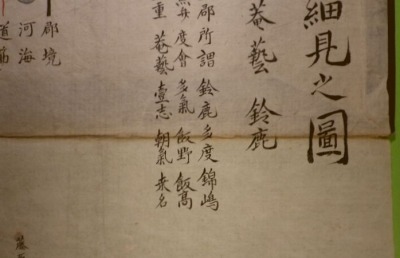 細見之圖
菴藝 鈴鹿
郡所謂 鈴鹿 多度 錦嶋
度會 多氣 飯野 飯高
重 菴藝 壹志 朝氣 桒名
郡境
河海
道筋